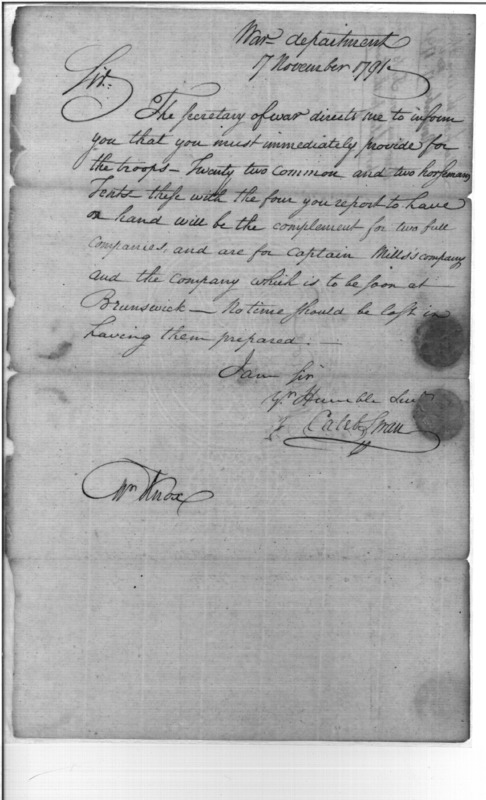 War department
7 November 1791
Sir.
The Secretary of war directs me to inform
you that you must immediately provide for
the troops — Twenty two common and two horseman
Tents these with the four you report to have
on hand will be the complement for two full
companies, and are for Captain Mills's company
and the company which is to be soon at
Brunswick — No time should be lost in
having them prepared. —
I am Sir
Yr. Humble Servt.
Caleb Swan
Wm Knox